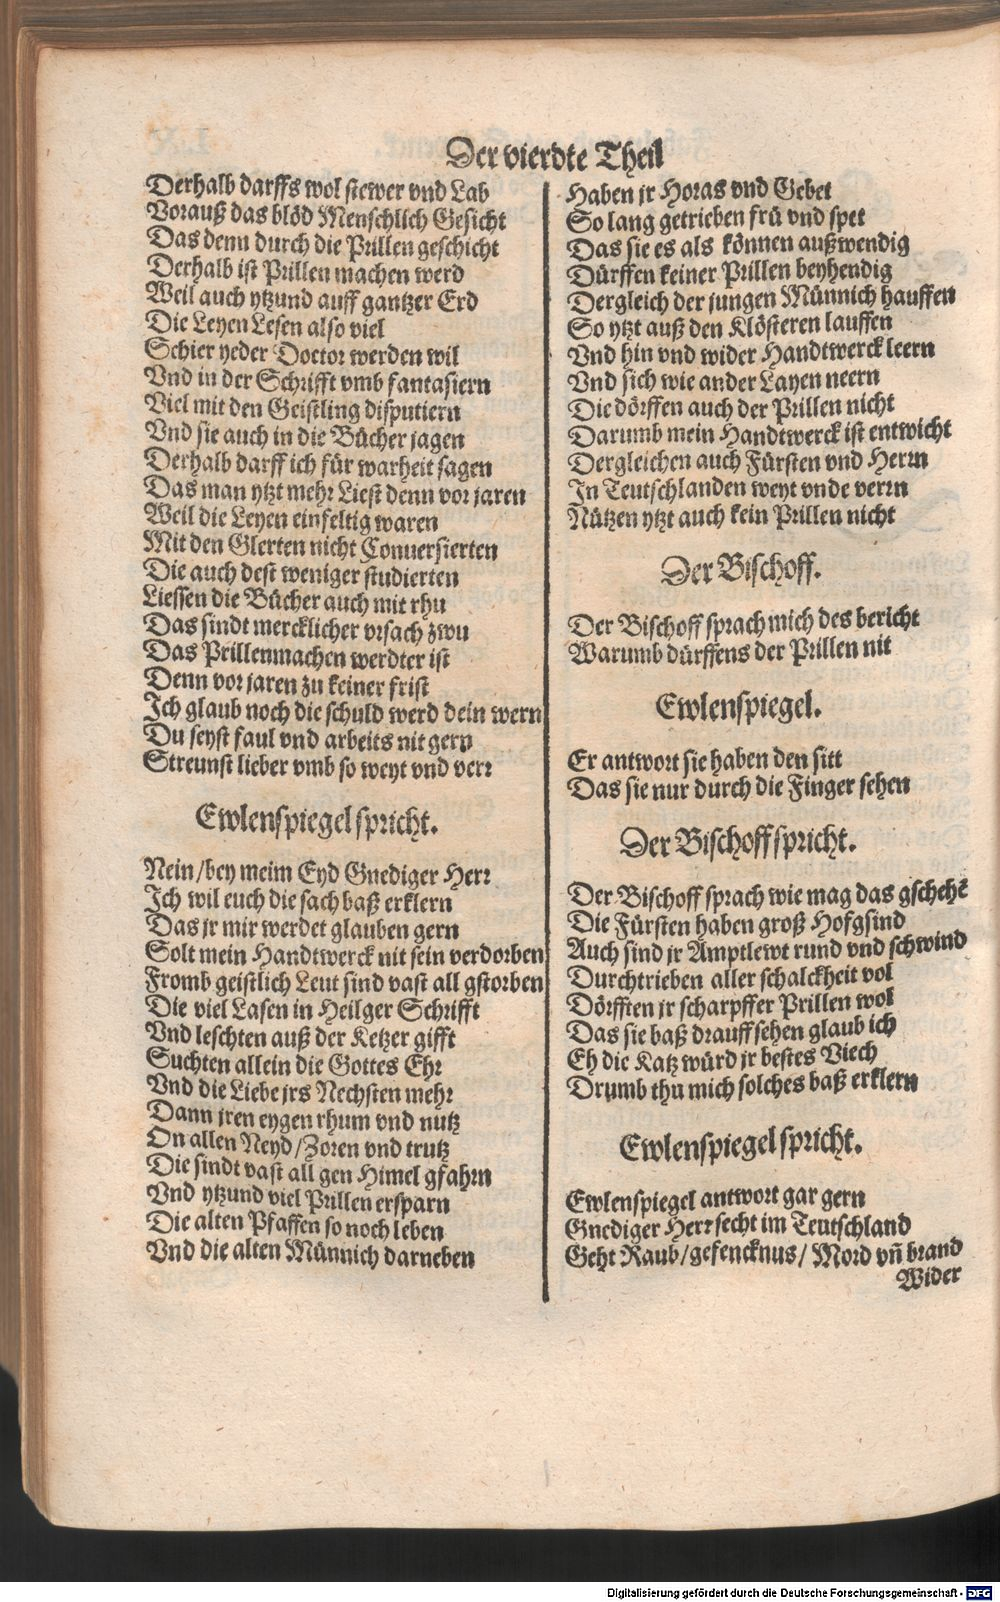 Der vierdte Theil
Derhalb darffs wol stewer vnd Lab
Vorauß das blöd Menschlich Gesicht
Das denn durch die Prillen geschicht
Derhalb ist Prillen machen werd
Weil auch ytzund auff gantzer Erd
Die Leyen Lesen also viel
Schier yeder Doctor werden wil
Vnd in der Schrifft vmb fantasiern
Viel mit den Geistling disputiern
Vnd sie auch in die Bücher jagen
Derhalb darff ich für warheit sagen
Das man ytzt mehr Liest denn vor jaren
Weil die Leyen einfeltig waren
Mit den Glerten nicht Conuersierten
Die auch dest weniger studierten
Liessen die Bücher auch mit rhu
Das sindt mercklicher vrsach zwu
Das Prillenmachen werdter ist
Denn vor jaren zu keiner frist
Ich glaub noch die schuld werd dein wern
Du seyst faul vnd arbeits nit gern
Streunst lieber vmb so weyt vnd verr
Ewlenspiegel spricht.
Nein/bey meim Eyd Gnediger Herr
Ich wil euch die sach baß erklern
Das jr mir werdet glauben gern
Solt mein Handtwerck nit sein verdorben
Fromb geistlich Leut sind vast all gstorben
Die viel Lasen in Heilger Schrifft
Vnd leschten auß der Ketzer gifft
Suchten allein die Gottes Ehr
Vnd die Liebe jrs Nechsten mehr
Dann jren eygen rhum vnd nutz
On allen Neyd/Zoren vnd trutz
Die sindt vast all gen Himel gfahrn
Vnd ytzund viel Prillen ersparn
Die alten Pfaffen so noch leben
Vnd die alten Münnich darneben
Haben jr Horas vnd Gebet
So lang getrieben frü vnd spet
Das sie es als können außwendig
Dürffen keiner Prillen beyhendig
Dergleich der jungen Münnich hauffen
So ytzt auß den Klösteren lauffen
Vnd hin vnd wider Handtwerck leern
Vnd sich wie ander Layen neern
Die dörffen auch der Prillen nicht
Darumb mein Handtwerck ist entwicht
Dergleichen auch Fürsten vnd Herrn
In Teutschlanden weyt vnde verrn
Nützen ytzt auch kein Prillen nicht
Der Bischoff.
Der Bischoff sprach mich des bericht
Warumb dürffens der Prillen nit
Ewlenspiegel.
Er antwort sie haben den sitt
Das sie nur durch die Finger sehen
Der Bischoff spricht.
Der Bischoff sprach wie mag das gschehē
Die Fürsten haben groß Hofgsind
Auch sind jr Amptlewt rund vnd schwind
Durchtrieben aller schalckheit vol
Dörfften jr scharpffer Prillen wol
Das sie baß drauff sehen glaub ich
Eh die Katz würd jr bestes Viech
Drumb thu mich solches baß erklern
Ewlenspiegel spricht.
Ewlenspiegel antwort gar gern
Gnediger Herr secht im Teutschland
Geht Raub/gefencknus/ Mord vn̄ brand
Wider
Digitalisierung gefördert durch die Deutsche Forschungsgemeinschaft - DFG